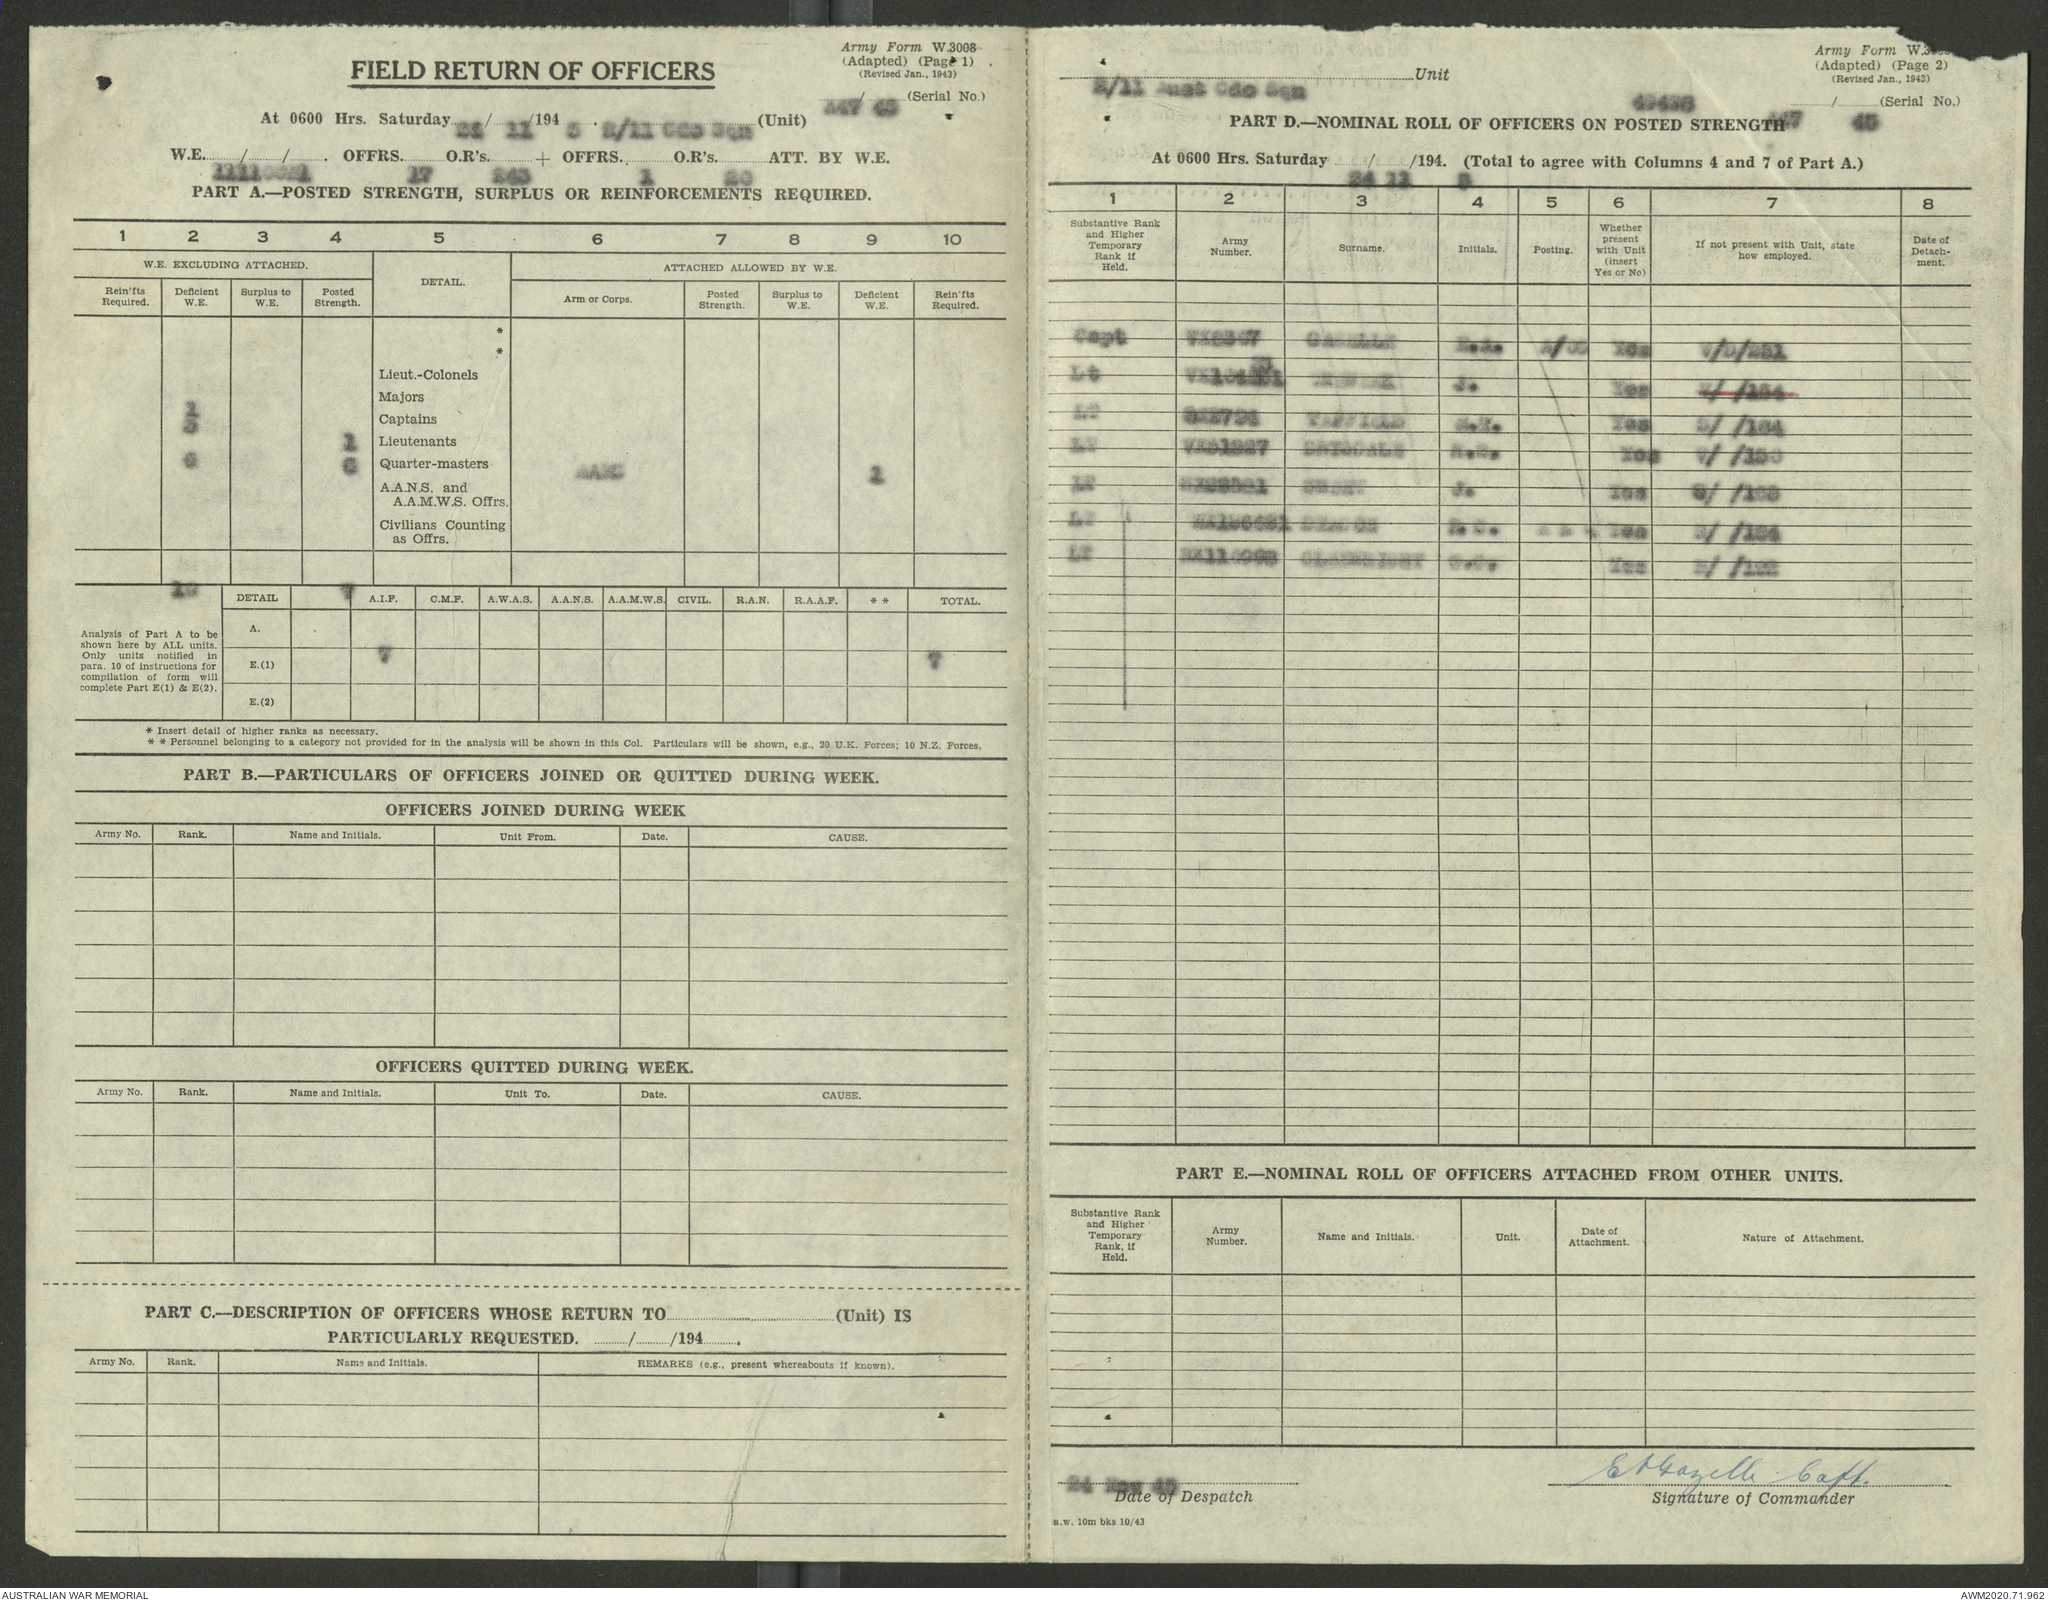 Army Form W.3008
(Adapted) (Page 1)
(Revised Jan., 1943)
FIELD RETURN OF OFFICERS
A47 / 45 (Serial No.)
At 0600 Hrs. Saturday 24/ 11 /194 5 . 2/11 Cdo Sqn (Unit)
W.E. / / . OFFRS. 17 O.R's. 243 + OFFRS. 1 O.R's. 20 ATT. BY W.E.
PART A.—POSTED STRENGTH, SURPLUS OR REINFORCEMENTS REQUIRED.
1 2 3 4 5 6 7 8 9 10
W.E. EXCLUDING ATTACHED. DETAIL. ATTACHED ALLOWED BY W.E.
Rein'fts Required. Deficient W.E. Surplus to W.E. Posted Strength. Arm or Corps. Posted Strength. Surplus to W.E. Deficient W.E. Rein'fts Required.
*
*
Lieut.-Colonels
Majors
1 Captains
3 1 Lieutenants
6 6 Quarter-masters AAMC 1
A.A.N.S. and
A.A.M.W.S. Offrs.
Civilians Counting
as Offrs.
10 7
DETAIL A.I.F. C.M.F. A.W.A.S. A.A.N.S. A.A.M.W.S. CIVIL. R.A.N. R.A.A.F. * * TOTAL.
Analysis of Part A to be
shown here by ALL units.
Only units notified in
para. 10 of instructions for
compilation of form will
complete Part E(1) & E(2).
A.
E.(1) 7 7
E.(2)
* Insert detail of higher ranks as necessary.
* * Personnel belonging to a category not provided for in the analysis will be shown in this Col. Particulars will be shown, e.g., 20 U.K. Forces; 10 N.Z. Forces.
PART B.—PARTICULARS OF OFFICERS JOINED OR QUITTED DURING WEEK.
OFFICERS JOINED DURING WEEK
Army No. Rank. Name and Initials. Unit From. Date. CAUSE.
OFFICERS QUITTED DURING WEEK.
Army No. Rank. Name and Initials. Unit To. Date. CAUSE.
PART C.—DESCRIPTION OF OFFICERS WHOSE RETURN TO (Unit) IS
PARTICULARLY REQUESTED. / /194 .
Army No. Rank. Name and Initials. REMARKS (e.g., present whereabouts if known).
Army Form W.3008
(Adapted) (Page 2)
(Revised Jan., 1943)
2/11 Aust Cdo Sqn Unit
49438
A47 / 45 (Serial No.)
PART D.—NOMINAL ROLL OF OFFICERS ON POSTED STRENGTH
At 0600 Hrs. Saturday 24 / 11 /194. 5 (Total to agree with Columns 4 and 7 of Part A.)
1 2 3 4 5 6 7 8
Substantive Rank and Higher Temporary Rank if Held. Army Number. Surname. Initials. Posting. Whether present with Unit (insert Yes or No) If not present with Unit, state how employed. Date of Detach-ment.
Capt GAZELLE E.A. Yes
Lt J. Yes
Lt Yes
Lt DRYSDALE Yes
Lt J. Yes
Lt Yes
Lt Yes
PART E.—NOMINAL ROLL OF OFFICERS ATTACHED FROM OTHER UNITS.
Substantive Rank and Higher Temporary Rank, if Held. Army Number. Name and Initials. Unit. Date of Attachment. Nature of Attachment.
24 Nov 45
Date of Despatch
EAGazelle Capt.
Signature of Commander
a.w. 10m bks 10/43
AUSTRALIAN WAR MEMORIAL
AWM2020.71.962